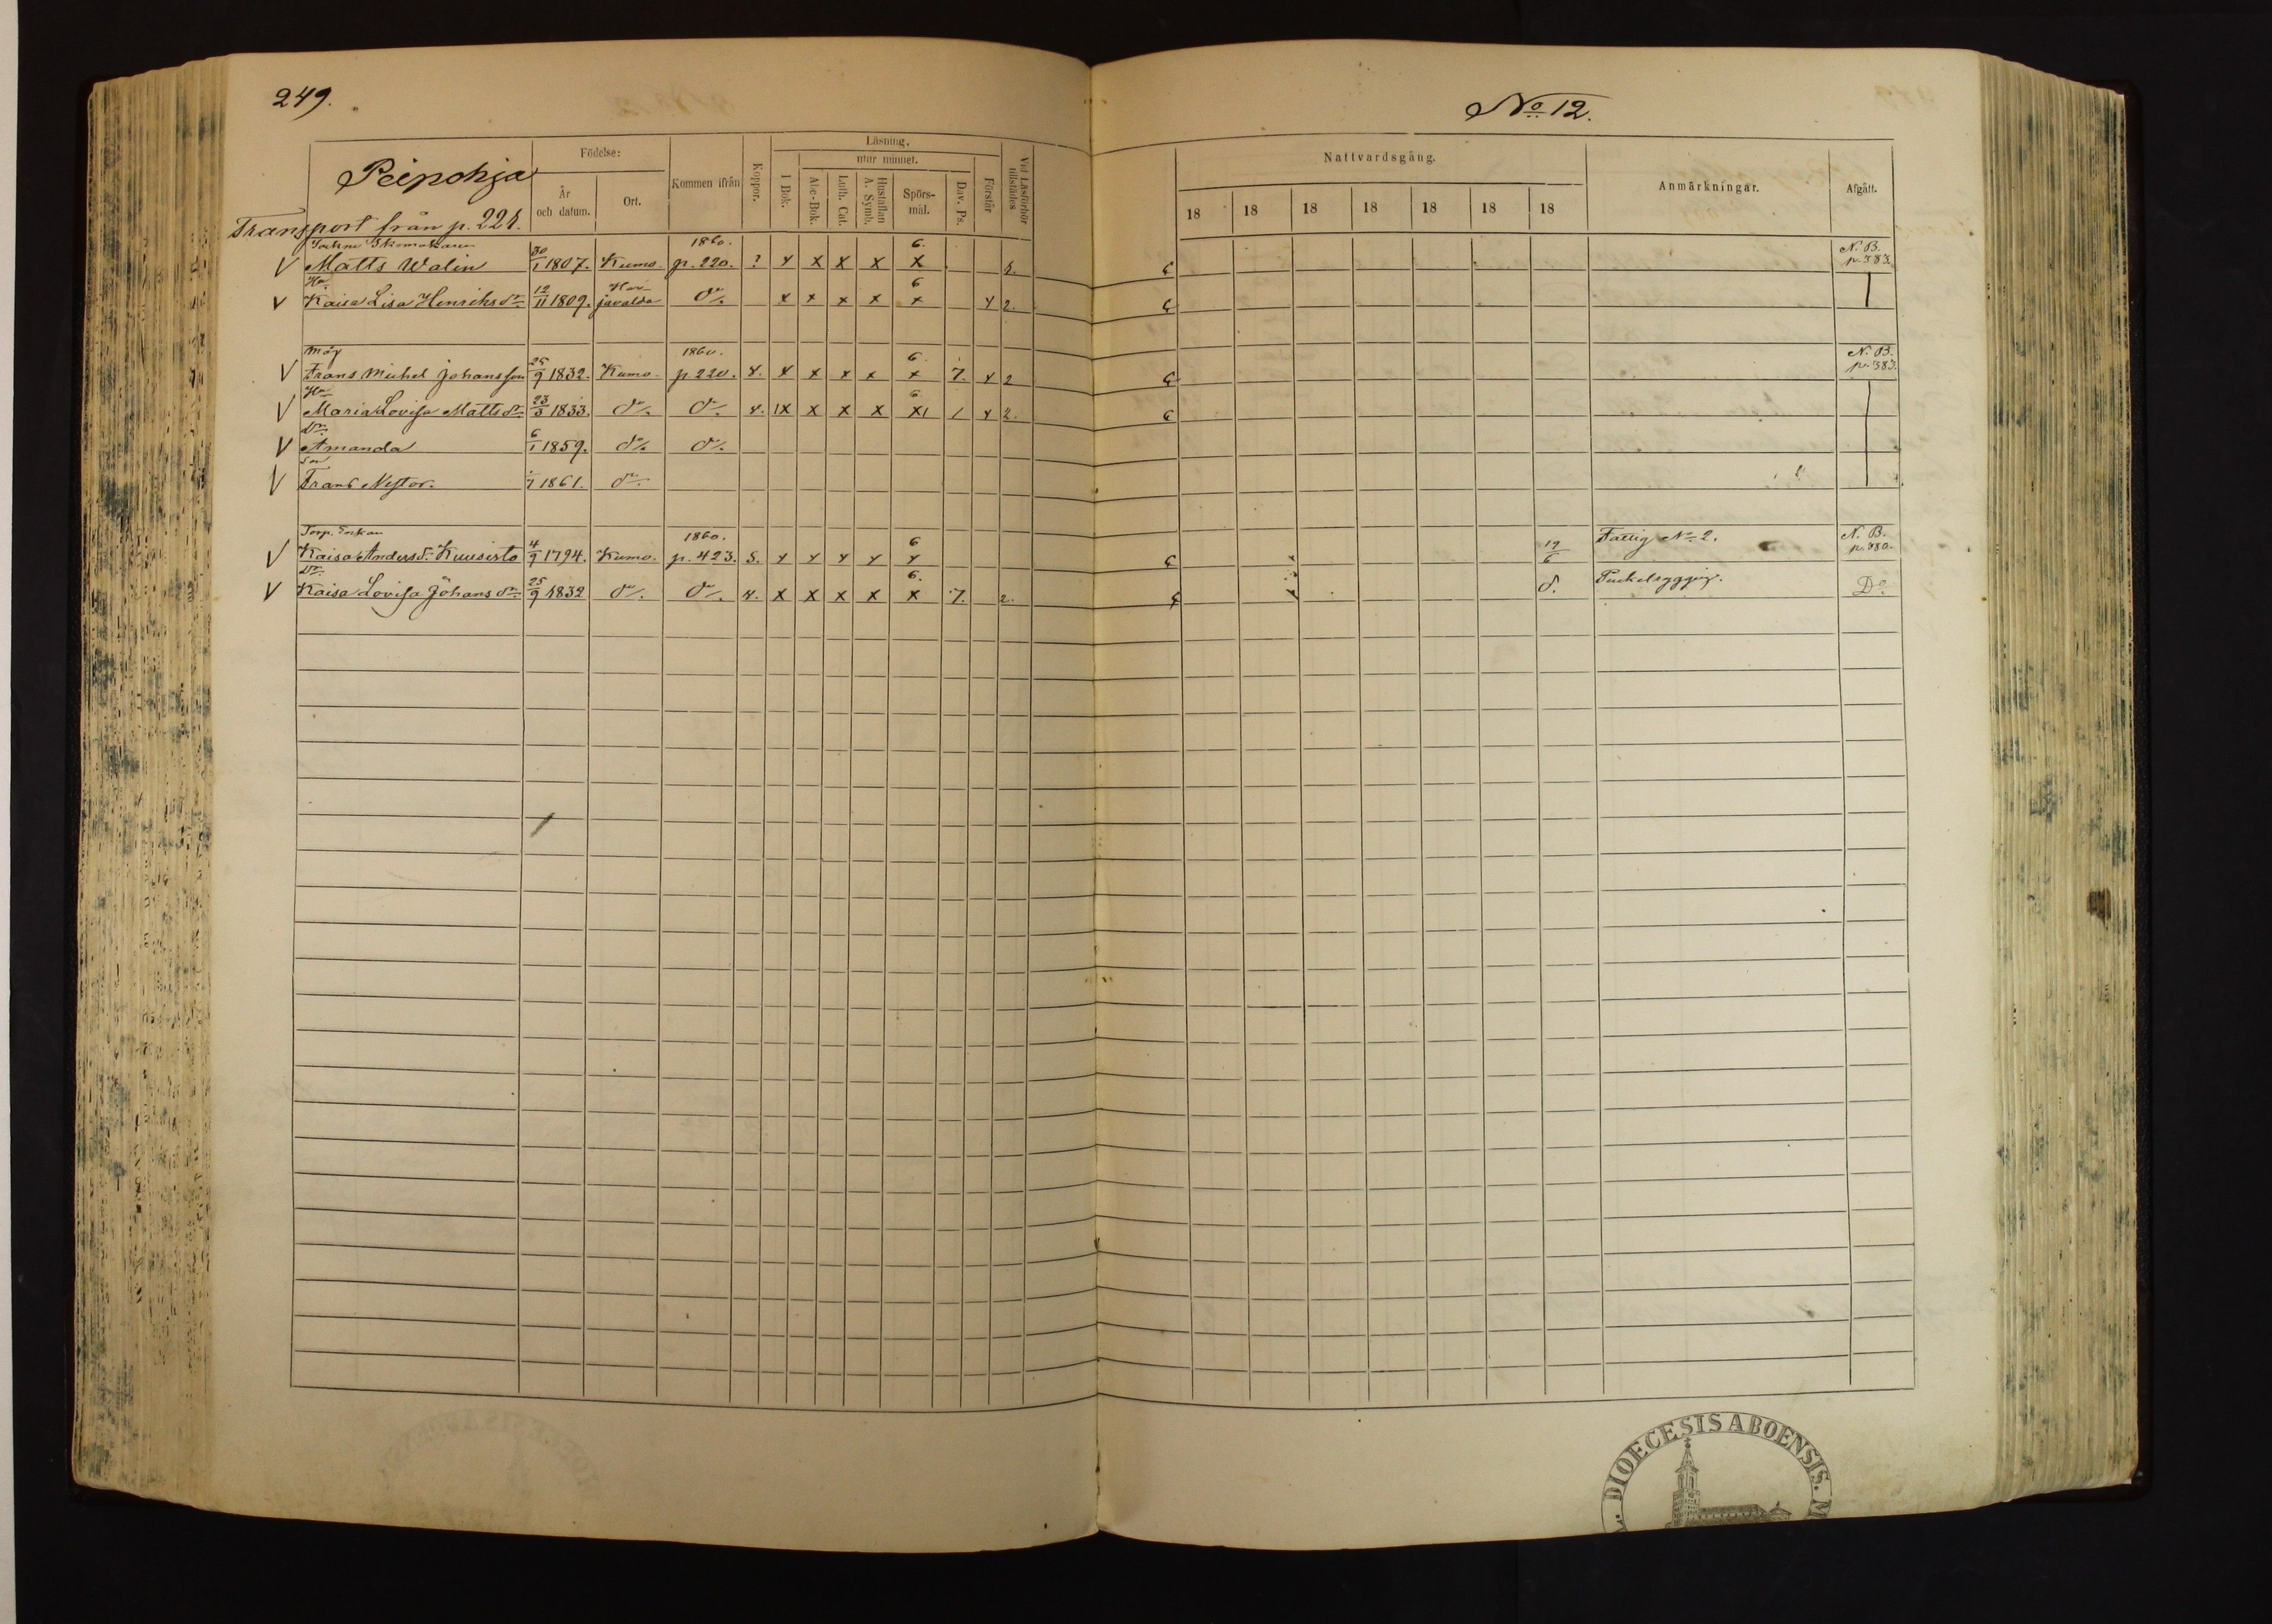 249.
No 12.
Peipohja
Transport från p. 221.
Födelse:
År och datum.
Ort.
Kommen ifrån
Koppor.
Läsning.
I Bok.
utur minnet.
Abc-Bok.
Luth. Cat.
Hustaflan A. Symb.
Spörsmål.
Dav. Ps.
Förstår
Vid Läsförhör tillstädes
Nattvardsgång.
18 18 18 18 18 18 18
Anmärkningar.
Afgått.
1860. 6. N. B.
V Matts Walin 30/1 1807. Kumo. p. 220. ? x x x x x p. 383.
Hu
V Kaisa Lisa Henriksdr 12/11 1809. Harjavalda do. x x x x 6 x x 2.
Måg 1860. 6. N. B.
V Frans Michel Johansson 25/9 1832. Kumo. p 220. 4. x x x x x 7. x 2 p. 383.
Hu 6
V Maria Lovisa Mattsdr 23/3 1833. do. do. 4. x x x x x x 2.
Dr.
V Amanda 6/1 1859. do. do.
Son
V Frans Nestor. 1861. do.
Torp. Enkan 1860. 6 19/6 Fattig No 2. N. B.
V Kaisa Andersdr Kuusisto 4/9 1794. Kumo. p. 423. S. x x x x x p. 380.
Dr. 6.
V Kaisa Lovisa Johansdr 25/9 1832 do. do. 4. x x x x x 7. 2. d. Puckelryggig. Do.
DIOECESIS ABOENSIS. M